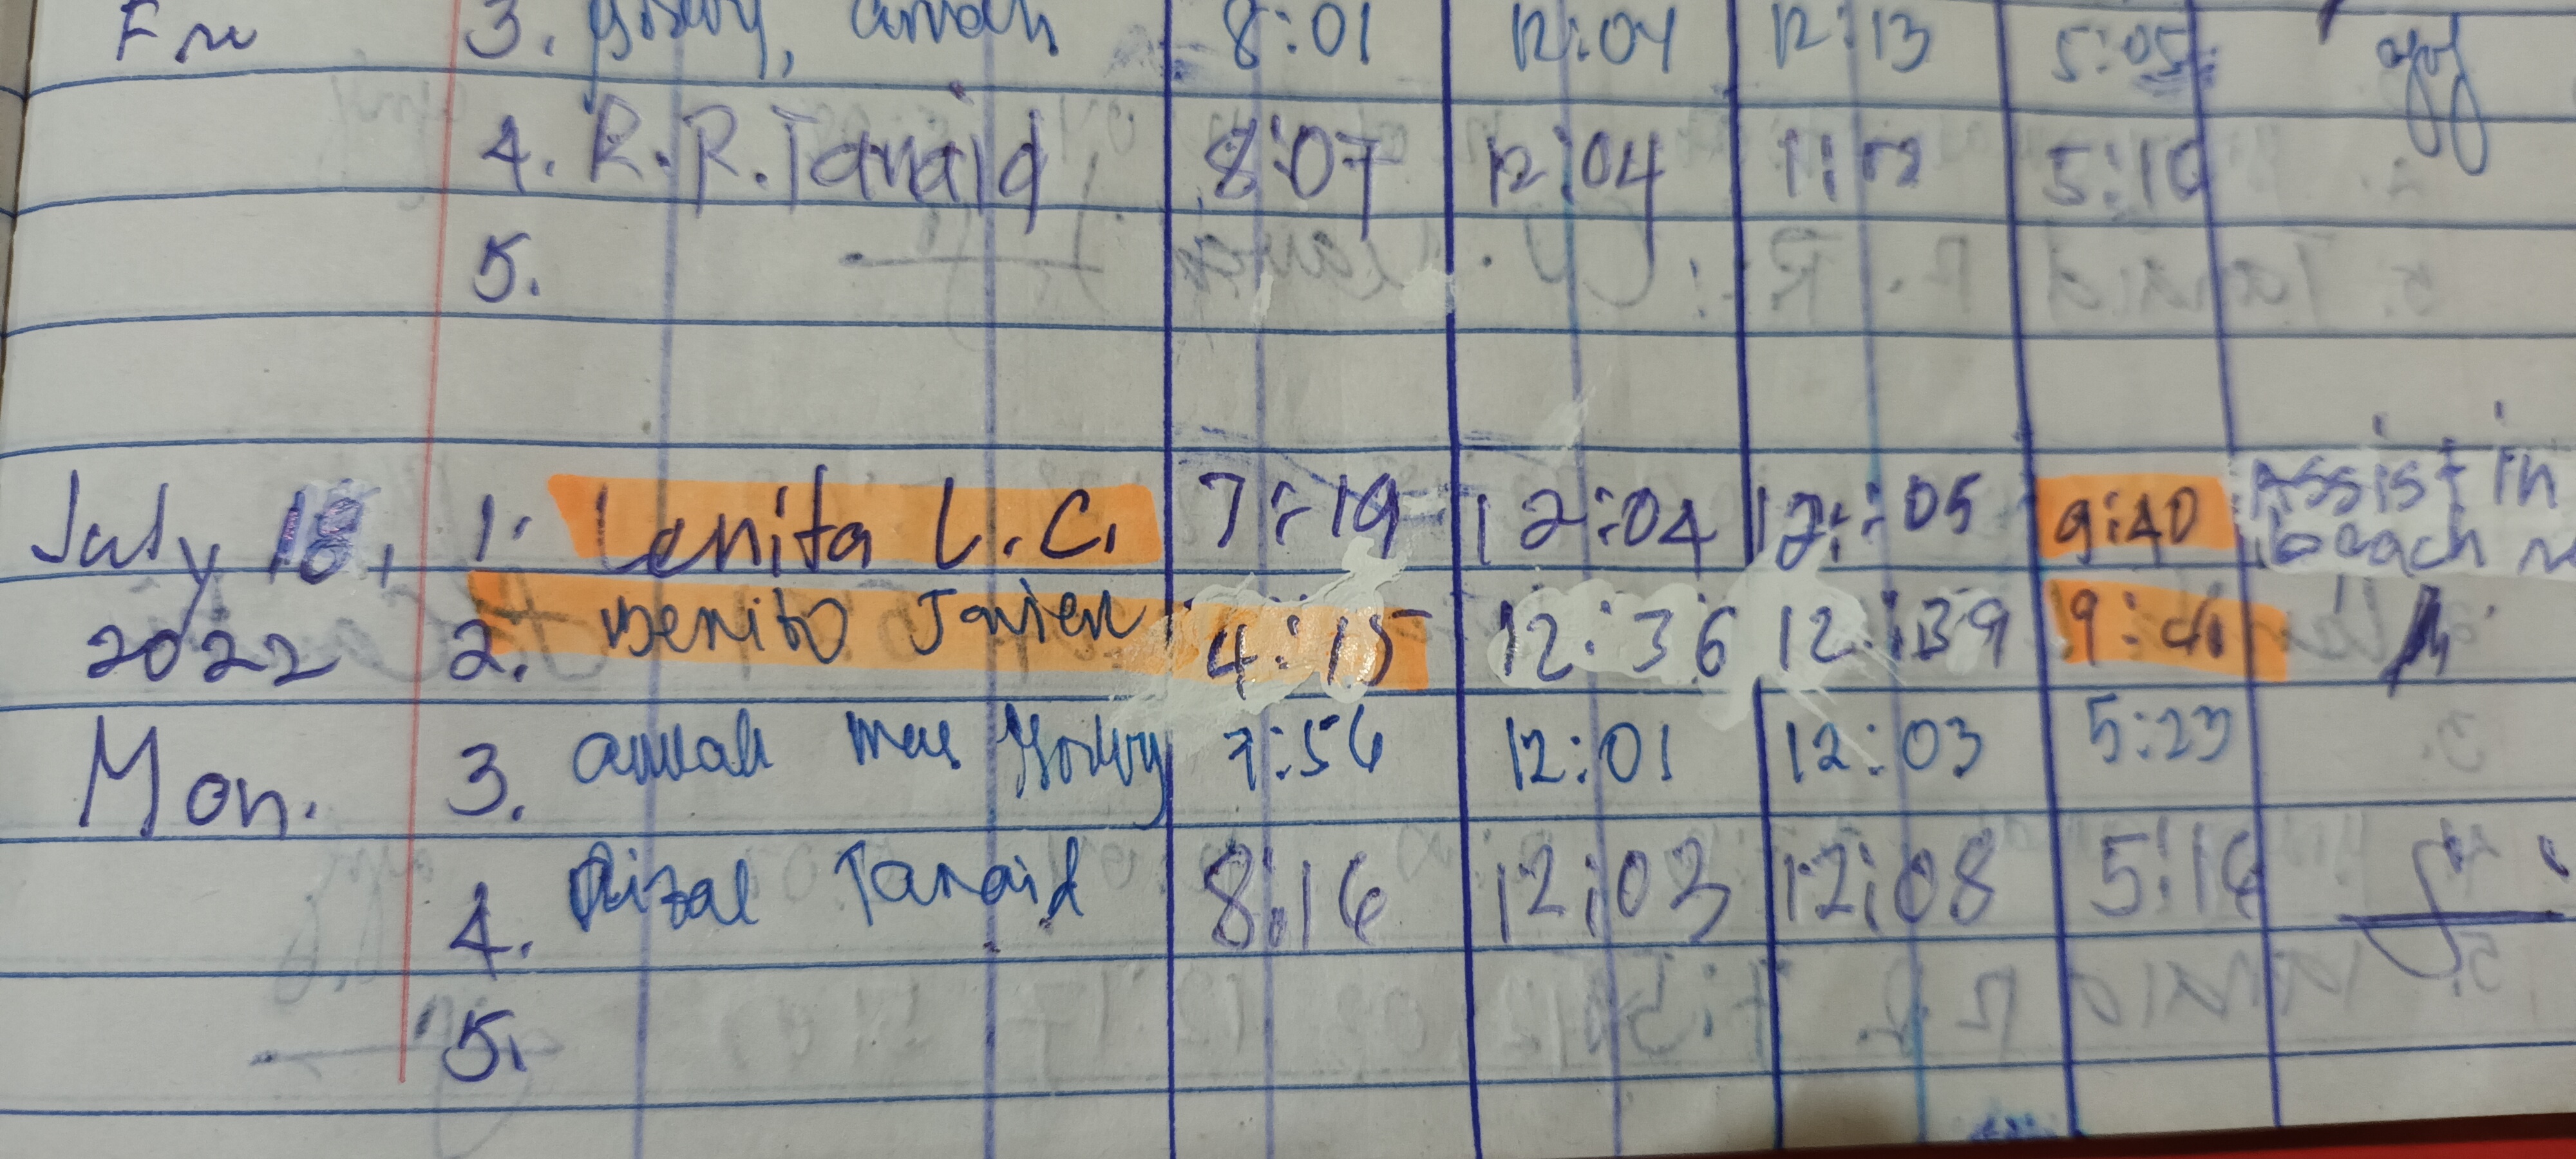 3. 8:01 12:04 12:13 5:05
4. R.R. Tanaid 8:07 12:04 5:10
5.
July 18, 1. Lenita L.C. 7:19 12:04 12:05 9:40 Assist in
beach
2022 2. Benito Javier 4:15 12:36 12:39 9:41
Mon. 3. 7:56 12:01 12:03 5:23
4. Rizal Tanaid 8:16 12:03 12:08 5:16
5.